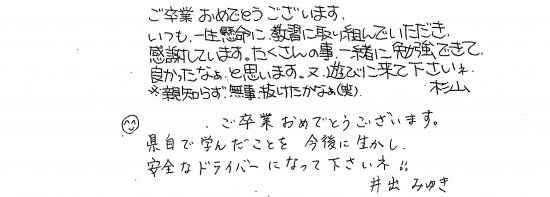 ご卒業おめでとうございます.
いつも.一生懸命に.教習に取り組んでいただき.
感謝しています。たくさんの事.一緒に勉強できて.
良かったなぁ.と思います。又.遊びに来て下さいネ.
※親知らず.無事.抜けたかなぁ(笑). 杉山
ご卒業おめでとうございます。
県自で学んだことを今後に生かし.
安全なドライバーになって下さいネ!!
井出みゆき